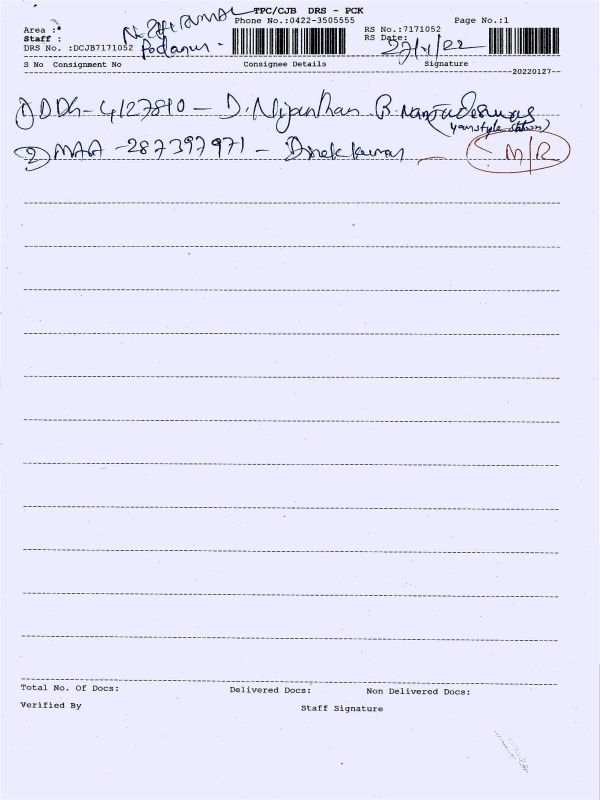 TPC/CJB DRS - PCK
Phone No.:0422-3505555 Page No.:1
Area :
Staff :
RS No.:7171052
RS Date:
DRS No. :DCJB7171052 Podanur.
S No Consignment No Consignee Details Signature
20220127
1) DDG - 4127810 - D. Nijanthan
2) MAA - 287397971 - kumar M/R
Total No. Of Docs: Delivered Docs: Non Delivered Docs:
Verified By Staff Signature